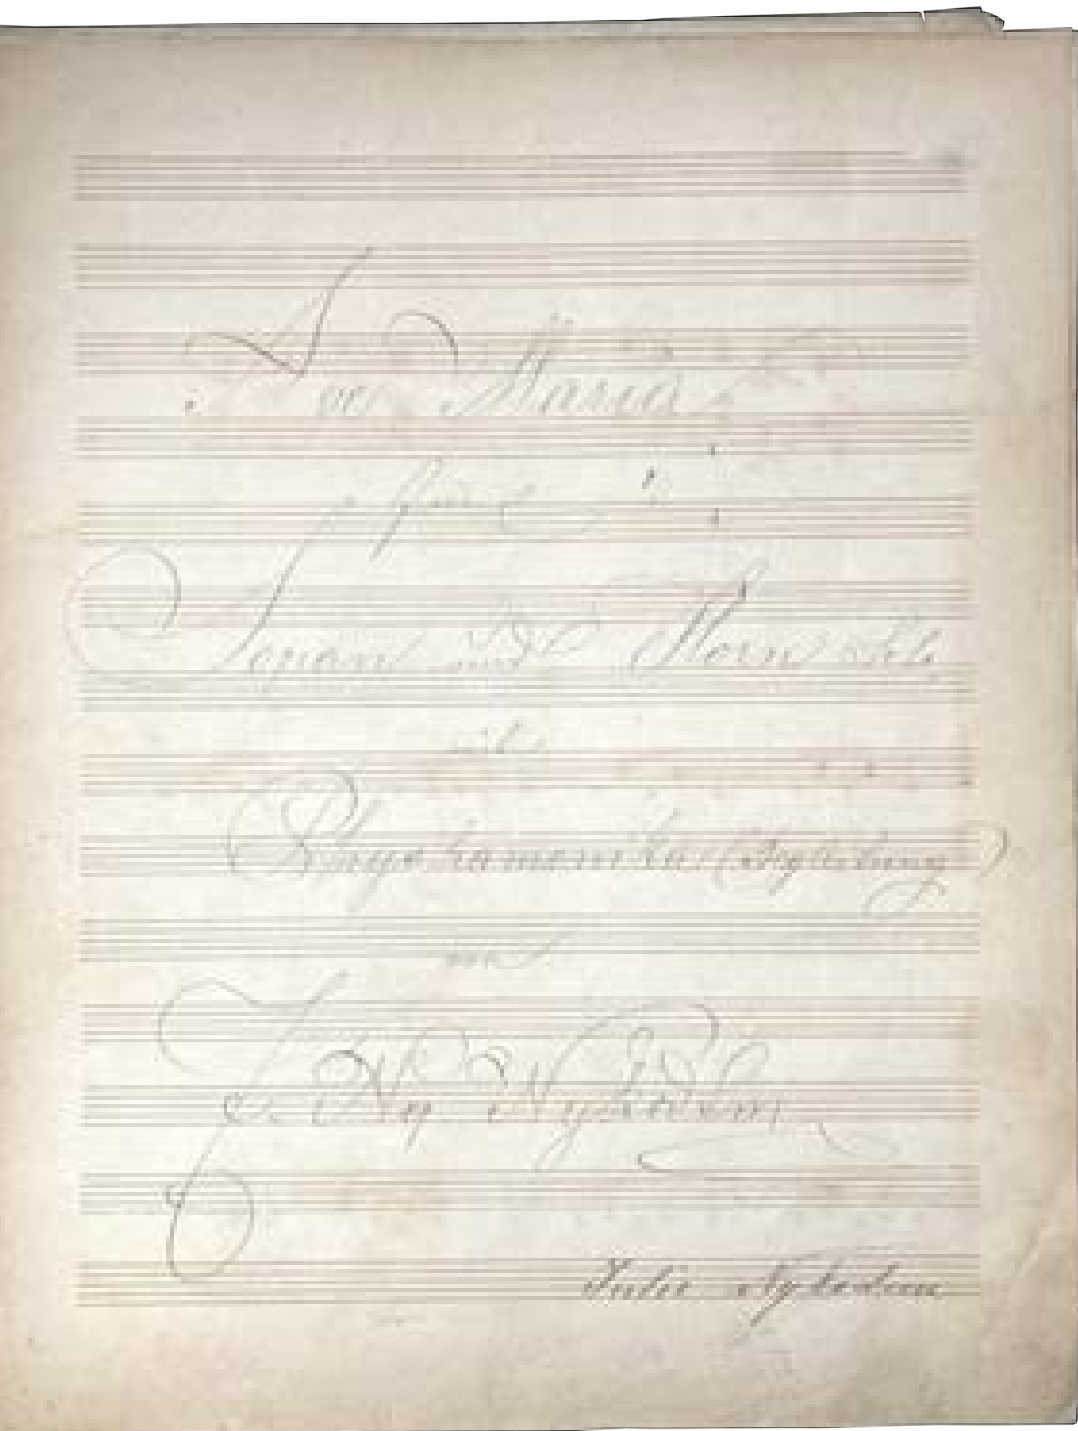 Ave Maria
für
Sopran und Horn Solo
mit
Physharmonika (Begleitung)
von
Julie Nykodem